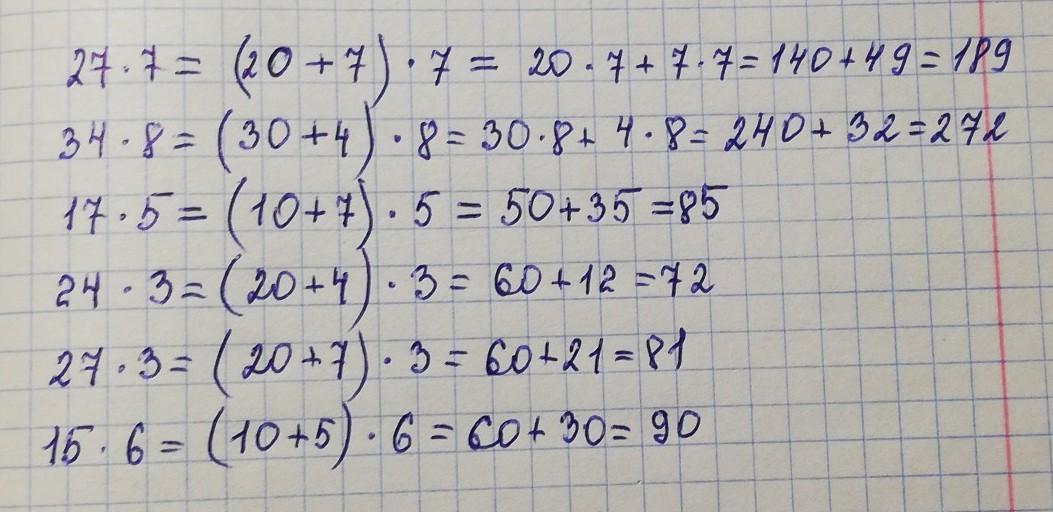 27·7 = (20+7)·7 = 20·7+7·7=140+49=189
34·8=(30+4)·8=30·8+4·8=240+32=272
17·5=(10+7)·5=50+35=85
24·3=(20+4)·3=60+12=72
27·3=(20+7)·3=60+21=81
15·6=(10+5)·6=60+30=90